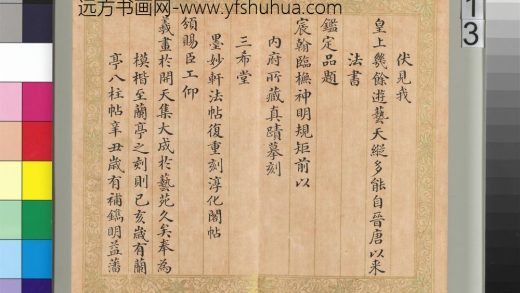 远方书画网-www.yfshuhua.com
13
伏見我
皇上幾餘遊藝天縱多能自晉唐以来
法書
鑑定品題
宸翰臨摹神明規矩前以
内府所藏真蹟摹刻
三希堂
墨妙軒法帖復重刻淳化閣帖
頒賜臣工仰
羲畫於開天集大成於藝苑久矣奉為
模楷至蘭亭之刻則己亥歲有蘭
亭八柱帖辛丑歲有補鐫明益藩